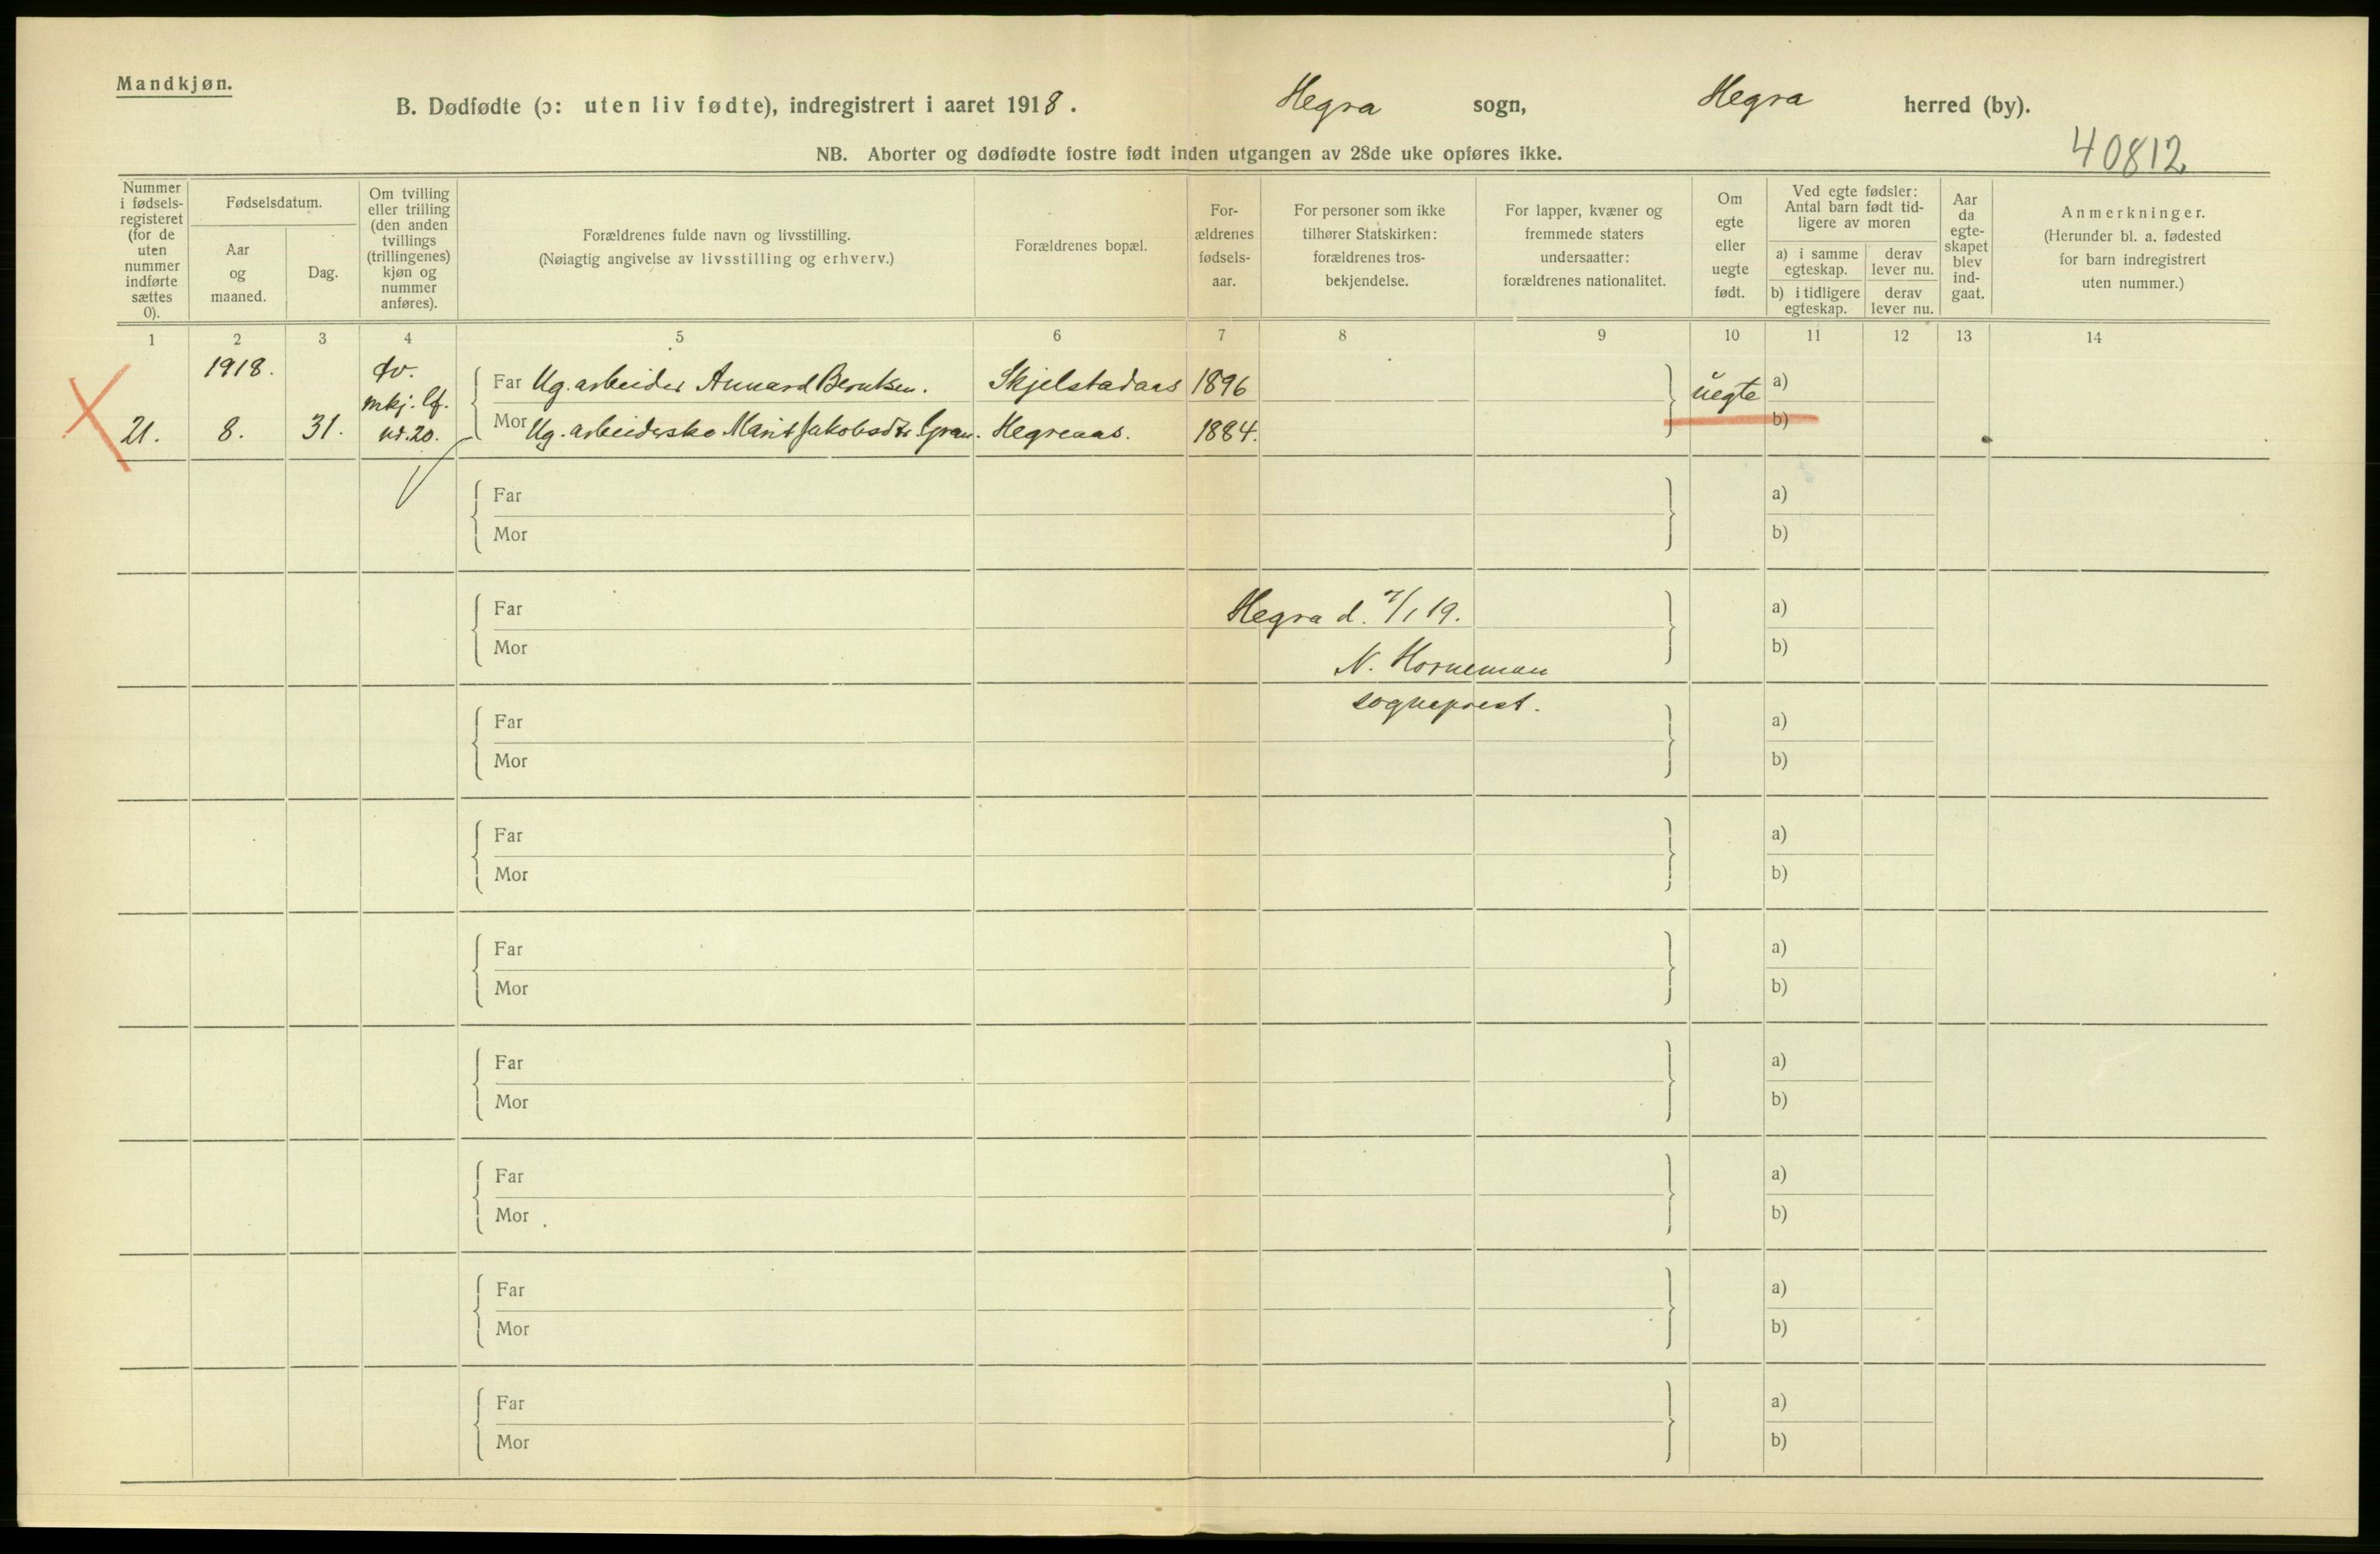 Mandkjøn.
B. Dødfødte (ɔ: uten liv fødte), indregistrert i aaret 1918. Hegra sogn, Hegra herred (by).
NB. Aborter og dødfødte fostre født inden utgangen av 28de uke opføres ikke.
40812
Nummer i fødsels-registeret (for de uten nummer indførte sættes 0).
Fødselsdatum.
Aar og maaned.
Dag.
Om tvilling eller trilling (den anden tvillings (trillingenes) kjøn og nummer anføres).
Forældrenes fulde navn og livsstilling.
(Nøiagtig angivelse av livsstilling og erhverv.)
Forældrenes bopæl.
For-ældrenes fødsels-aar.
For personer som ikke tilhører Statskirken: forældrenes tros-bekjendelse.
For lapper, kvæner og fremmede staters undersaatter: forældrenes nationalitet.
Om egte eller uegte født.
Ved egte fødsler: Antal barn født tid-ligere av moren
a) i samme egteskap.
derav lever nu.
b) i tidligere egteskap.
derav lever nu.
Aar da egte-skapet blev ind-gaat.
Anmerkninger.
(Herunder bl. a. fødested for barn indregistrert uten nummer.)
1 2 3 4 5 6 7 8 9 10 11 12 13 14
1918. tv.
mkj. lf.
Far Ug. arbeider Annard Berntsen. Skjelstadaas 1896 uegte a)
21. 8. 31. nr. 20. Mor Ug. arbeiderske Marit Jakobsdtr Gran. Hegreaas. 1884. b)
Far a)
Mor b)
Far Hegra d. 7/1 19. a)
Mor b)
N. Horneman
sogneprest.
Far a)
Mor b)
Far a)
Mor b)
Far a)
Mor b)
Far a)
Mor b)
Far a)
Mor b)
Far a)
Mor b)
Far a)
Mor b)